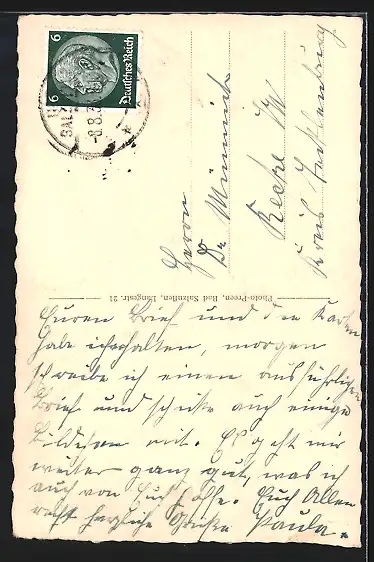 Euren Brief und die Karten
habe ich erhalten, morgen
schreibe ich einen ausführlichen
Brief und schicke auch einige
Bildchen mit. Es geht mir
weiter ganz gut, was ich
auch von Euch hoffe. Euch Allen
recht herzliche Grüße Paula.
Herrn
Dr. Münnich
Recke i/W
Kreis Tecklenburg
Photo-Preen, Bad Salzuflen, Langestr. 21
Deutsches Reich
6 6
SAL
-8.8.3